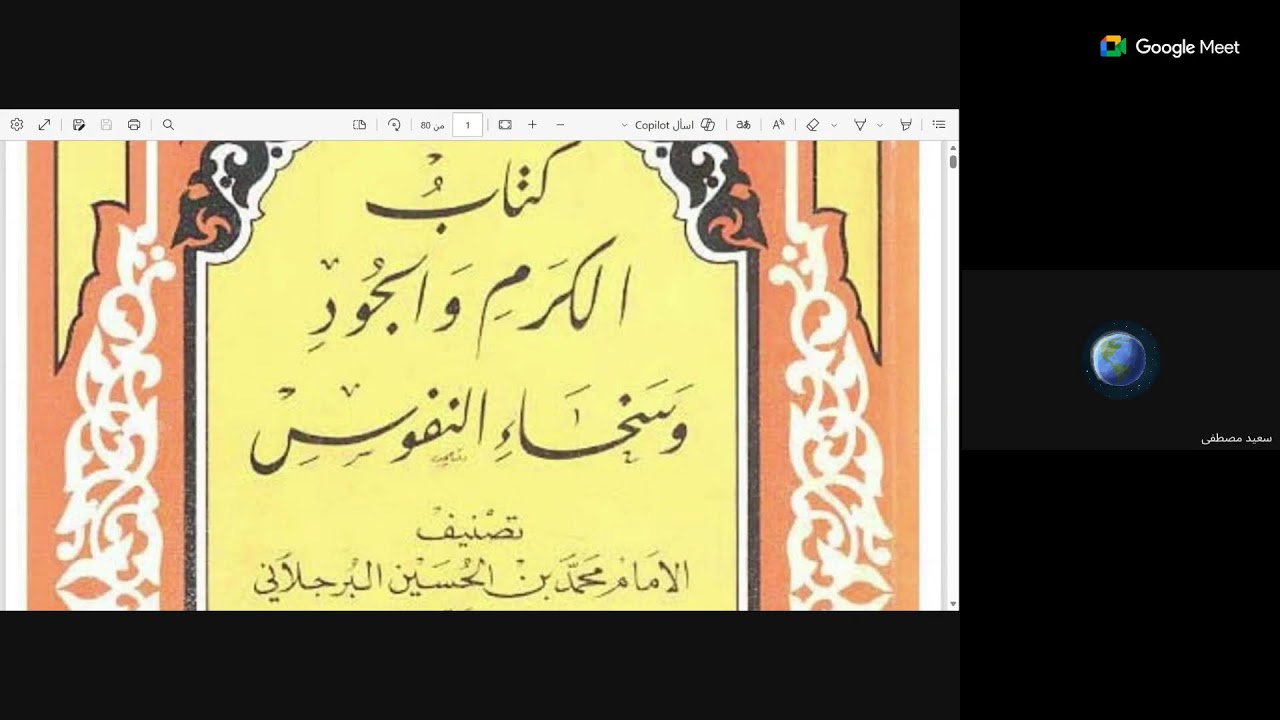 Google Meet
اسأل Copilot
1
من 80
كتابُ
الكَرَمِ وَالجُودِ
وَسَخَاءِ النفوسِ
تصنيف
الامَام محمَّد بن الحُسَين البُرجلاني
سعيد مصطفى